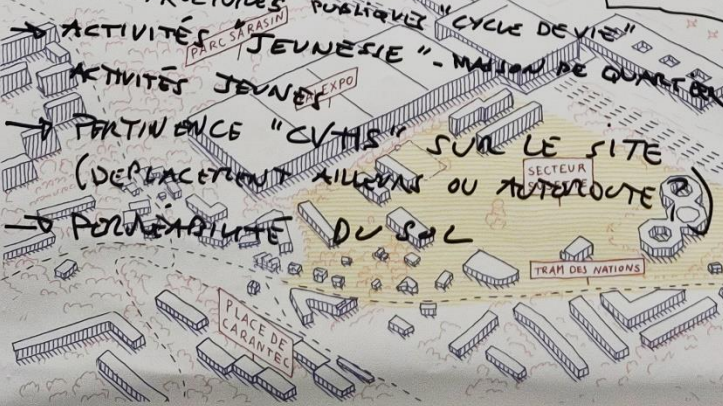 STRUCTURES PUBLIQUES "CYCLE DE VIE"
→ ACTIVITÉS "JEUNESSE" - MAISON DE QUARTIER
ACTIVITÉS JEUNES
→ PERTINENCE "CVHS" SUR LE SITE
(DEPLACEMENT AILLEURS OU AUTOROUTE ?)
→ PERMÉABILITÉ DU SOL
PARC SARASIN
EXPO
SECTEUR
TRAM DES NATIONS
PLACE DE
CARANTEC